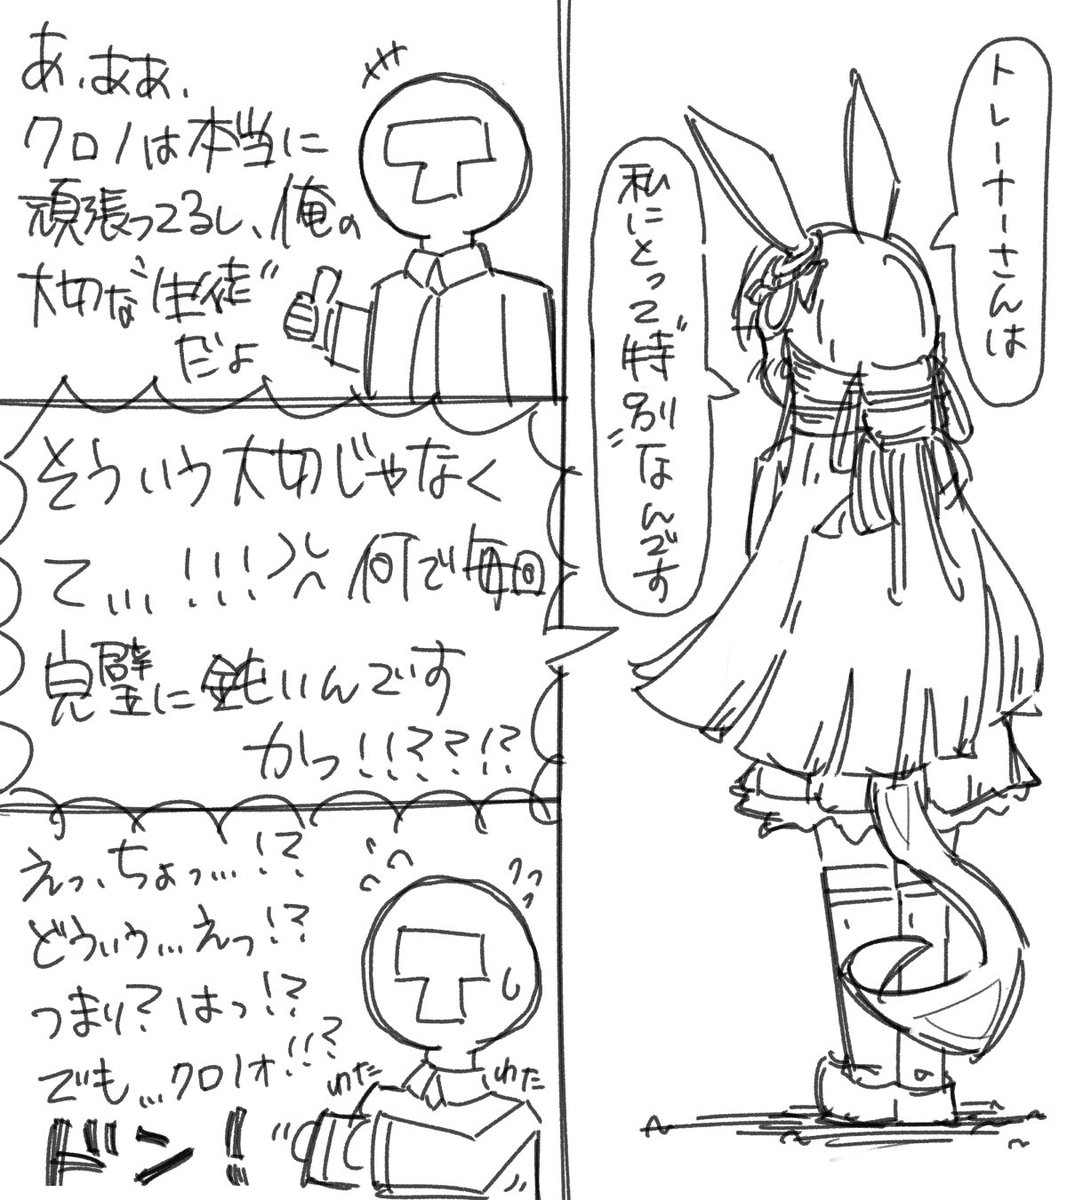 トレーナーさんは
私にとって"特別"なんです
あ、ああ、
クロノは本当に
頑張ってるし、俺の
大切な"生徒"
だよ
そういう大切じゃなく
て,,,!!!何で毎回
完璧に鈍いんです
かっ!!???!?
えっ、ちょっ...!?
どういう...えっ!?
つまり?はっ!?
でも...クロノオ!!?
わた
わた
ドン!